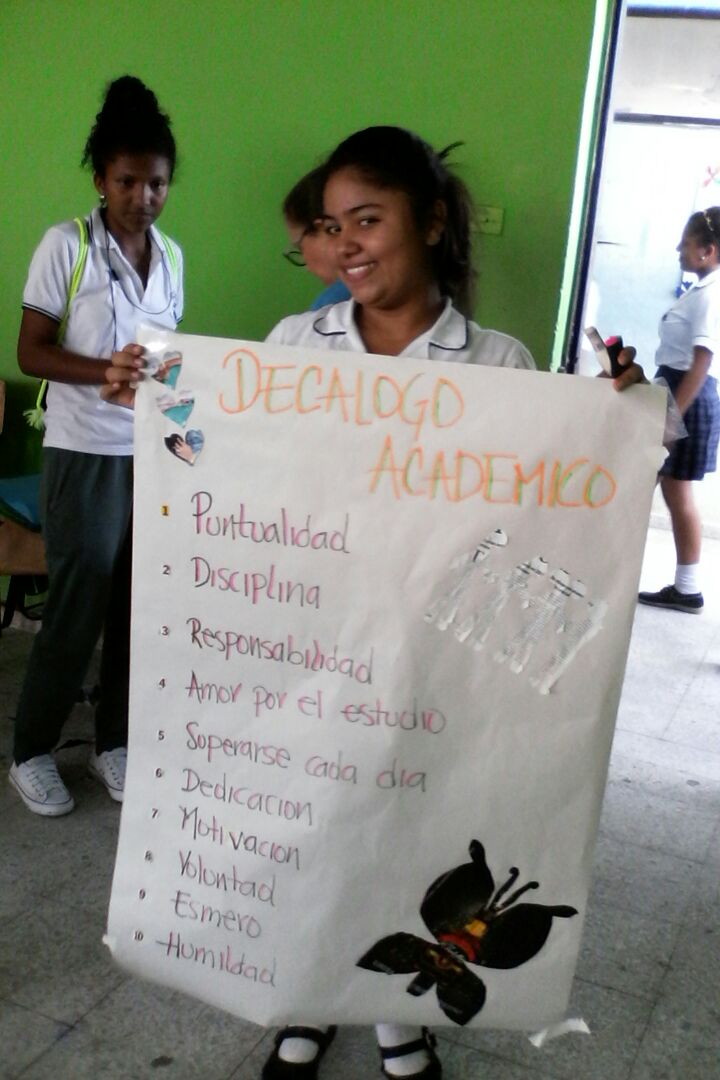 DECALOGO
ACADEMICO
1 Puntualidad
2 Disciplina
3 Responsabilidad
4 Amor por el estudio
5 Superarse cada dia
6 Dedicacion
7 Motivacion
8 Voluntad
9 Esmero
10 Humildad